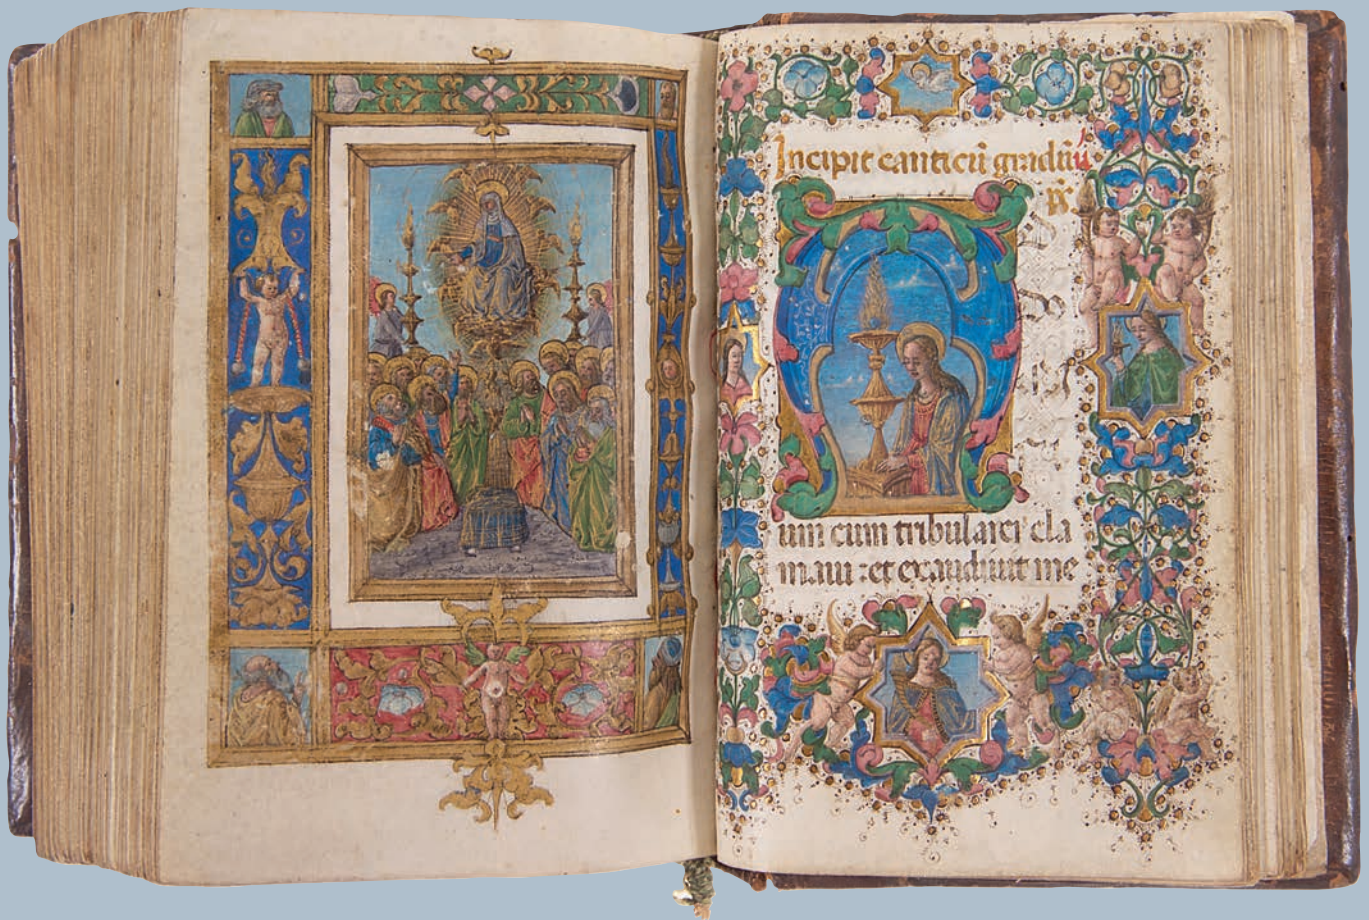 Incipit canticũ graduũ
ps.
D
um cum tribularer cla
maui : et exaudiuit me